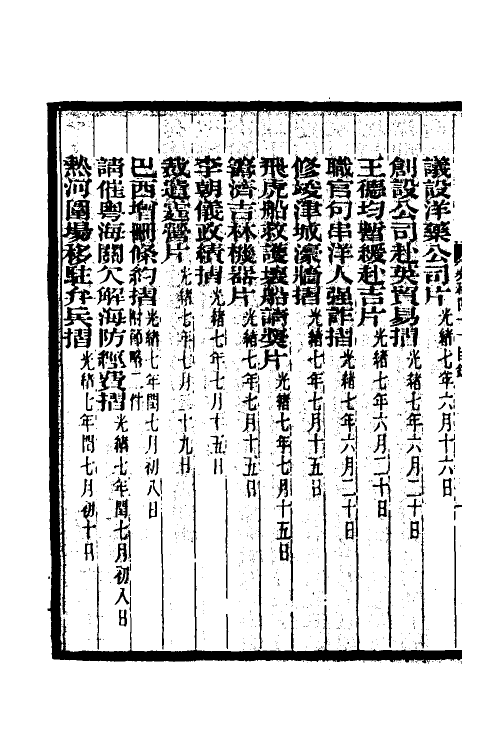 議設洋藥公司片 光緒七年六月十六日
創設公司赴英貿易摺 光緒七年六月二十日
王德均暫緩赴吉片 光緒七年六月二十日
職官句串洋人强詐摺 光緒七年六月二十日
修竣津城濠牆摺 光緒七年七月十五日
飛虎船救護壞船請獎片 光緒七年七月十五日
籌濟吉林機器片 光緒七年七月十五日
李朝儀政績摺 光緒七年七月十五日
裁遣霆營片 光緒七年七月二十九日
巴西增刪條約摺 附節略二件 光緒七年閏七月初八日
請催粵海關欠解海防經費摺 光緒七年閏七月初八日
熱河圍場移駐弁兵摺 光緒七年閏七月初十日